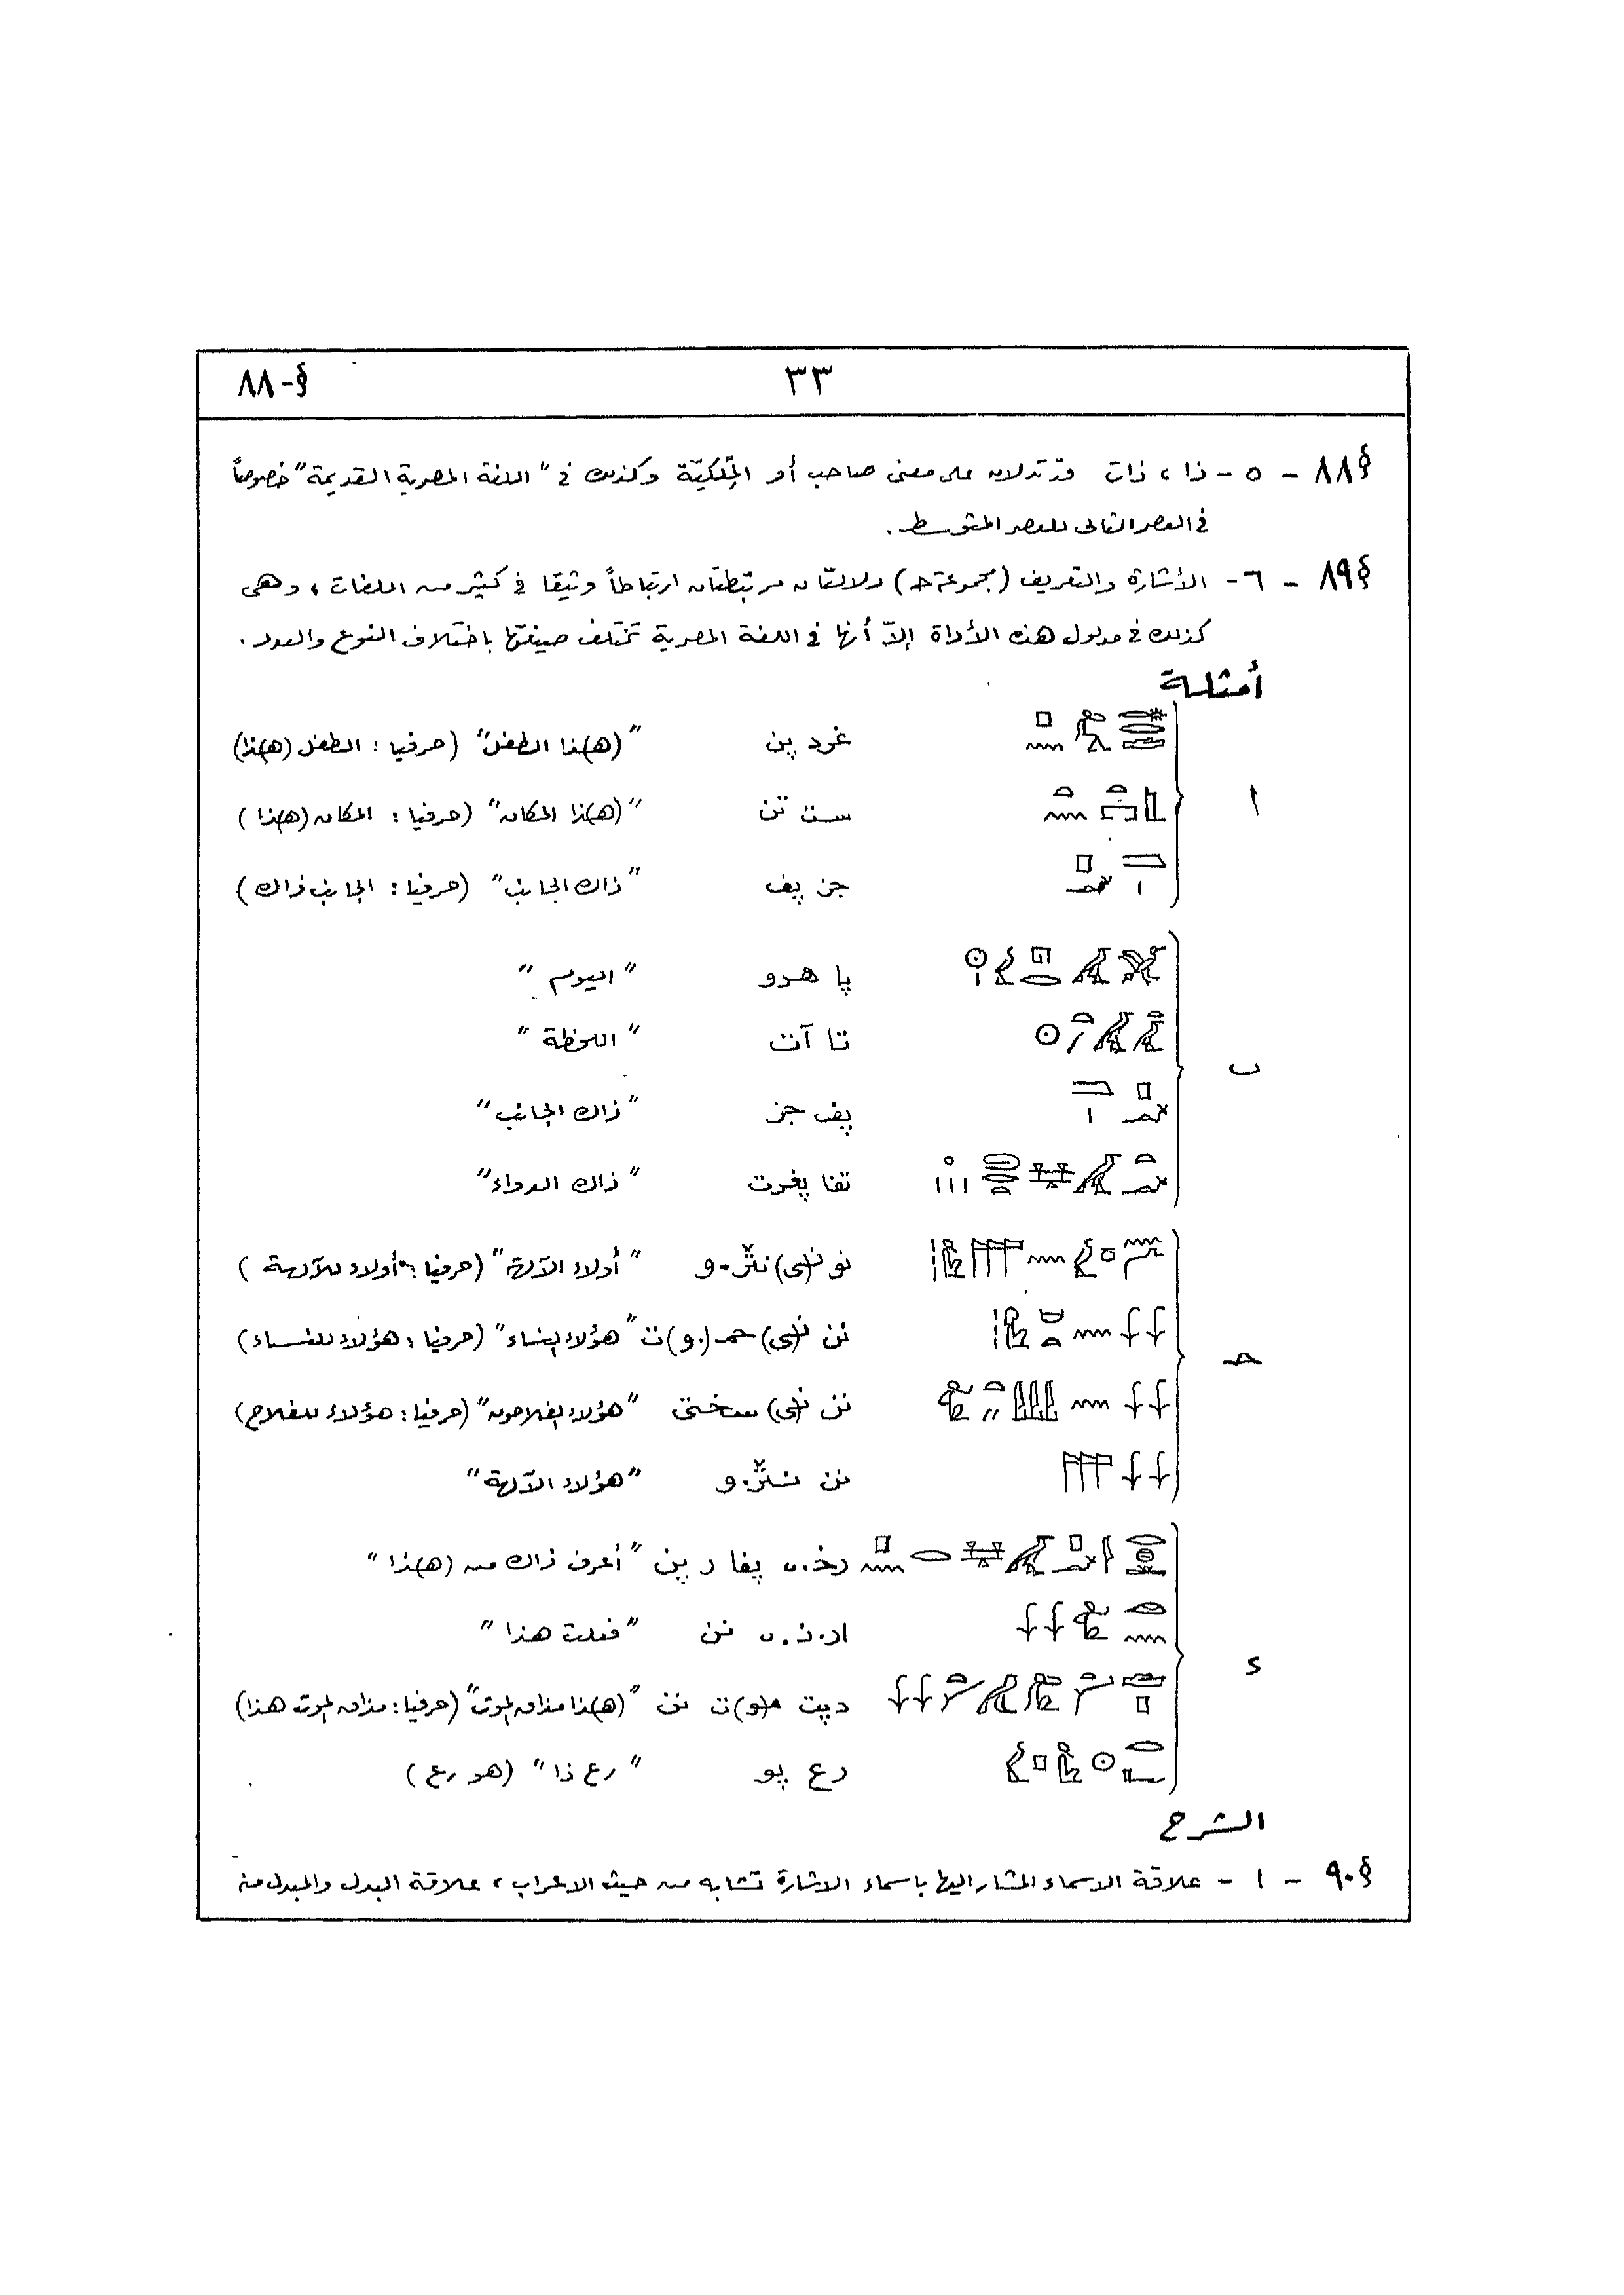 §-٨٨
٣٣
§٨٨ - ٥ - ذا ، ذات قد تدلان على معنى صاحب أو المِلْكيّة وكذلك في "اللغة المصرية القديمة" خصوصاً
في العصر التالى للعصر المتوسط .
§٨٩ - ٦ - الأشارة والتعريف (مجموعة حـ) دلالتان مرتبطتان ارتباطاً وثيقا في كثير من اللغات ، وهى
كذلك في مدلول هذه الأداة إلاّ أنها في اللغة المصرية تختلف صيغتها باختلاف النوع والعدد .
أمثلة
ا
غرد پن "(ه)ذا الطفل" (حرفيا : الطفل (ه)ذا)
ست تن "(ه)ذا المكان" (حرفيا : المكان (ه)ذا )
جز پف "ذاك الجانب" (حرفيا : الجانب ذاك )
ب
پا هرو "اليوم"
تا آت "اللحظة"
پف جز "ذاك الجانب"
تفا پغرت "ذاك الدواء"
نو ن(ى) نتْر.و "أولاء الآلهة" (حرفيا : أولاء للآلهة )
حـ
نن ن(ى) حمـ(.و)ت "هؤلاء النساء" (حرفيا : هؤلاء للنساء)
نن ن(ى) سختى "هؤلاء الفلاحون" (حرفيا : هؤلاء للفلاح)
نن نتْر.و "هؤلاء الآلهة"
رخ.ى پفا ر پن "أعرف ذاك من (ه)ذا"
ار.ن.ى نن "فعلت هذا"
د
دپت م(و)ت نن "(ه)ذا مذاق الموت" (حرفيا : مذاق الموت هذا)
رع پو "رع ذا" (هو رع )
الشرح
§٩٠ - ١ - علاقة الاسماء المشار اليها باسماء الاشارة تشابه من حيث الاعراب ، علاقة البدل والمبدل منه